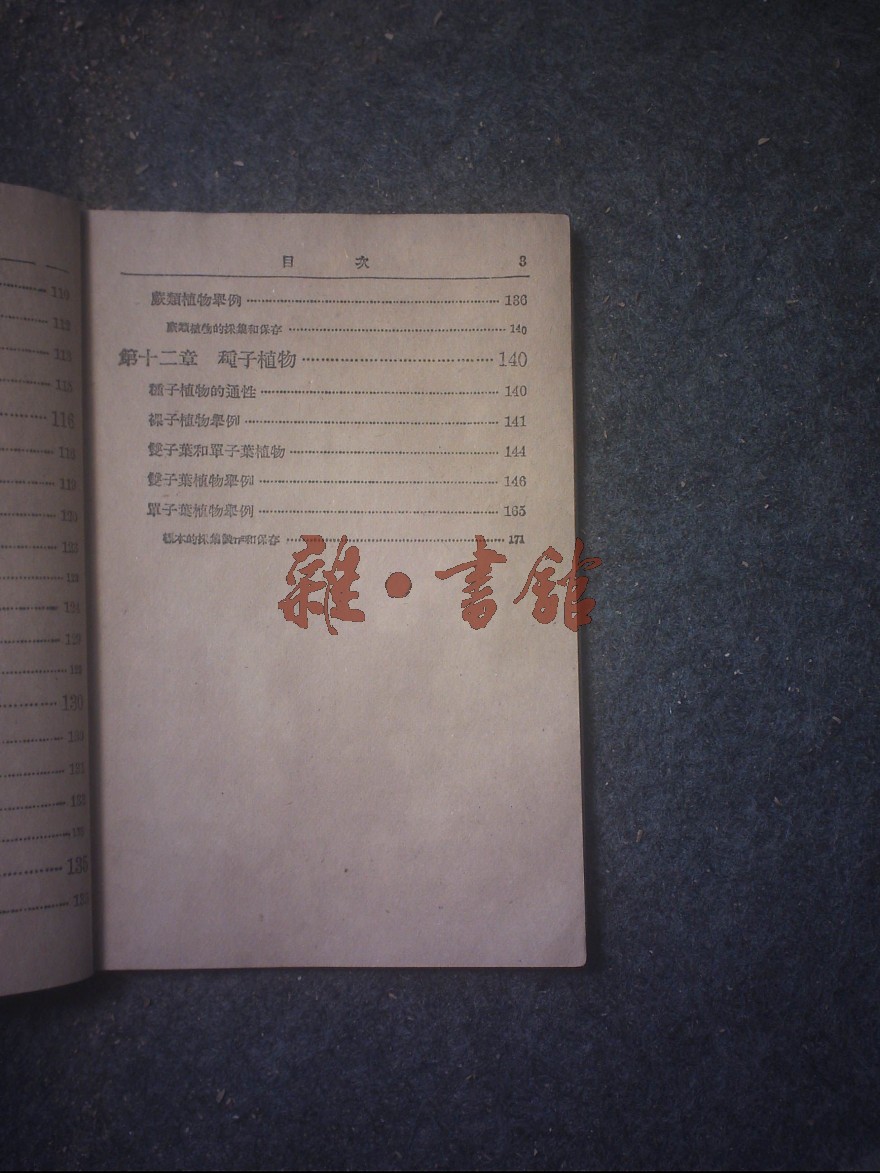 目 次 3
蕨類植物舉例 136
蕨類植物的採集和保存 140
第十二章 種子植物 140
種子植物的通性 140
裸子植物舉例 141
雙子葉和單子葉植物 144
雙子葉植物舉例 146
單子葉植物舉例 165
標本的採集製作和保存 171
雜·書館
110
112
113
115
116
116
119
120
123
123
124
129
129
130
130
131
132
135